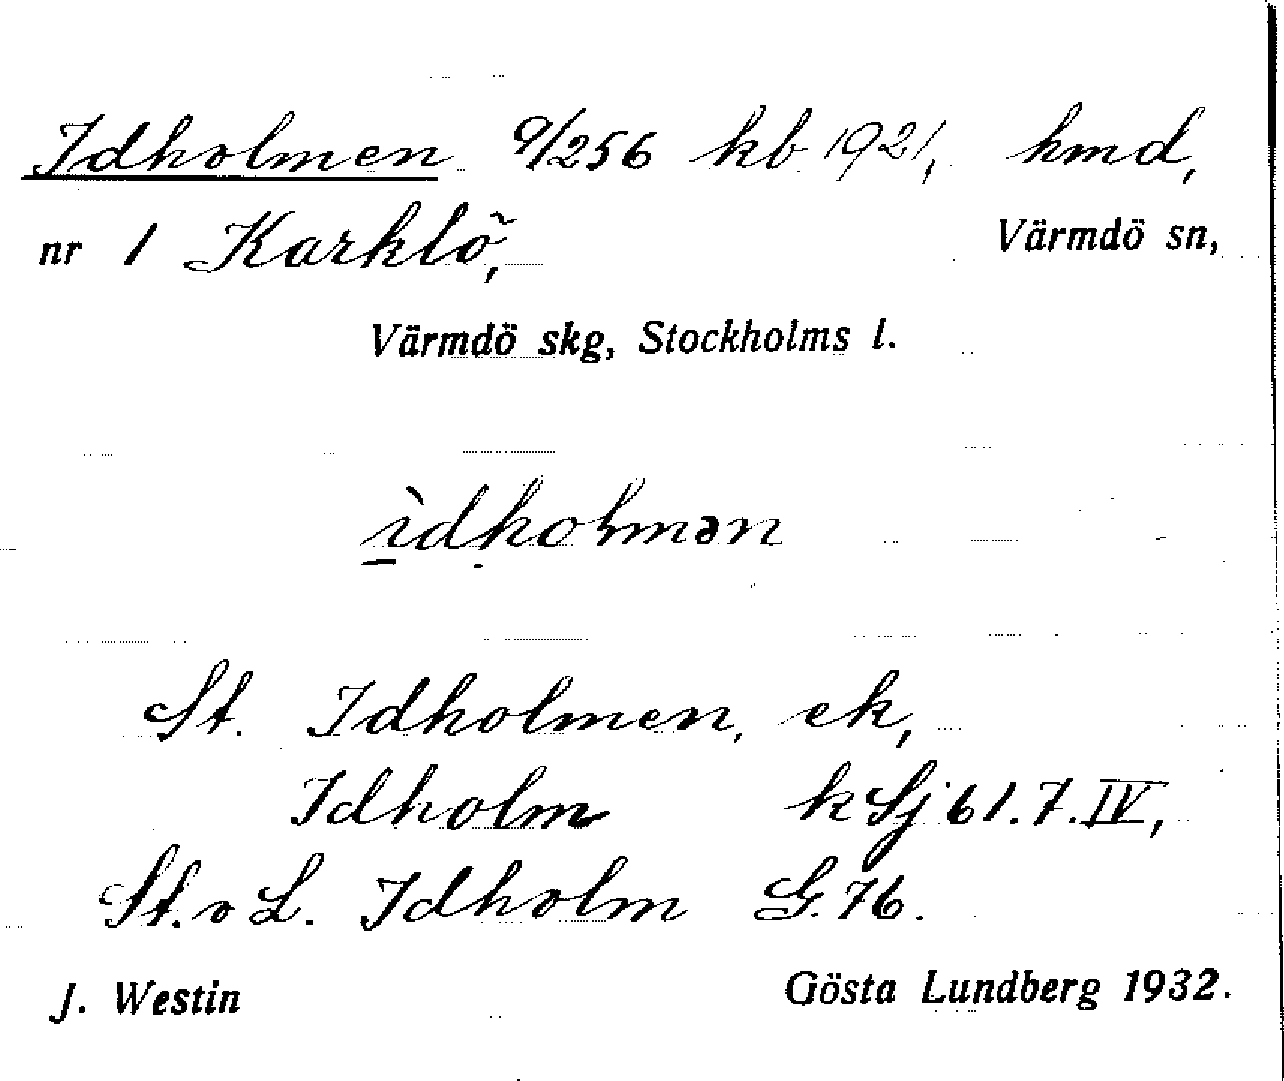 Idholmen 9/256 kb 1921, hmd,
nr 1 Karklö, Värmdö sn,
Värmdö skg, Stockholms l.
ìdholmən
St. Idholmen, ek,
Idholm k Sj 61.7.IV,
St. o L. Idholm G. 76.
J. Westin Gösta Lundberg 1932.